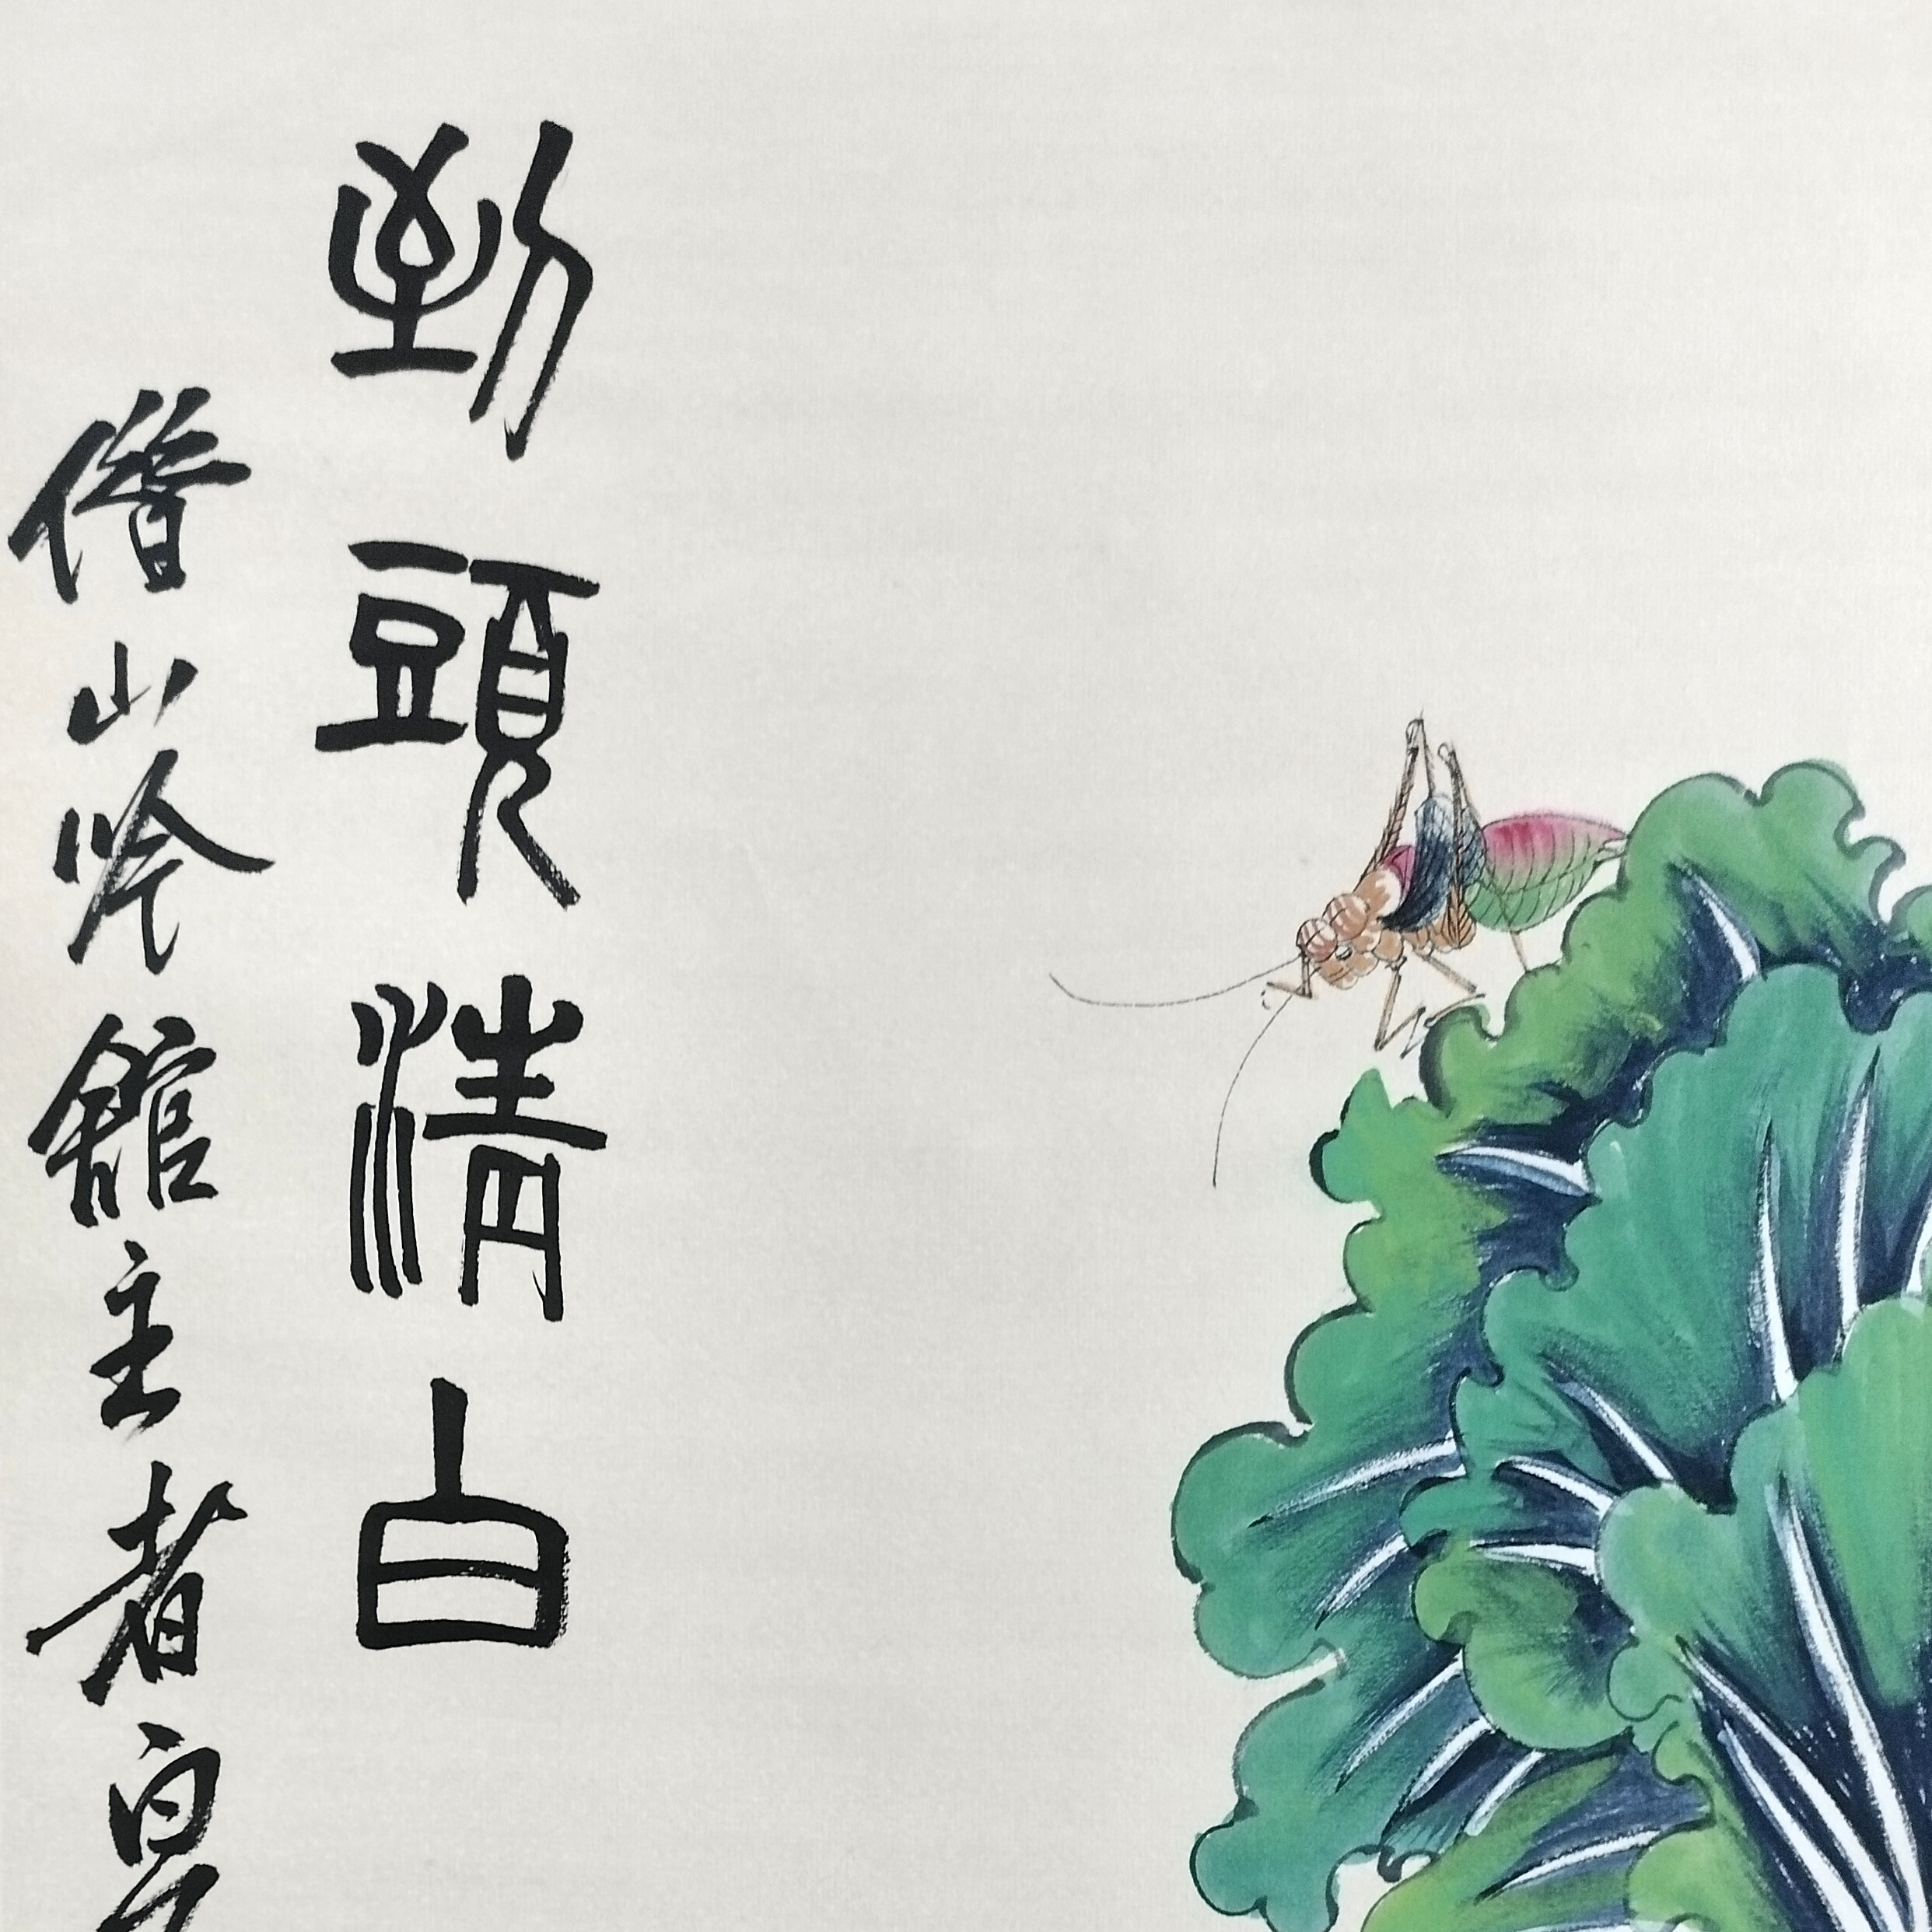 到頭清白
借山吟館主者白